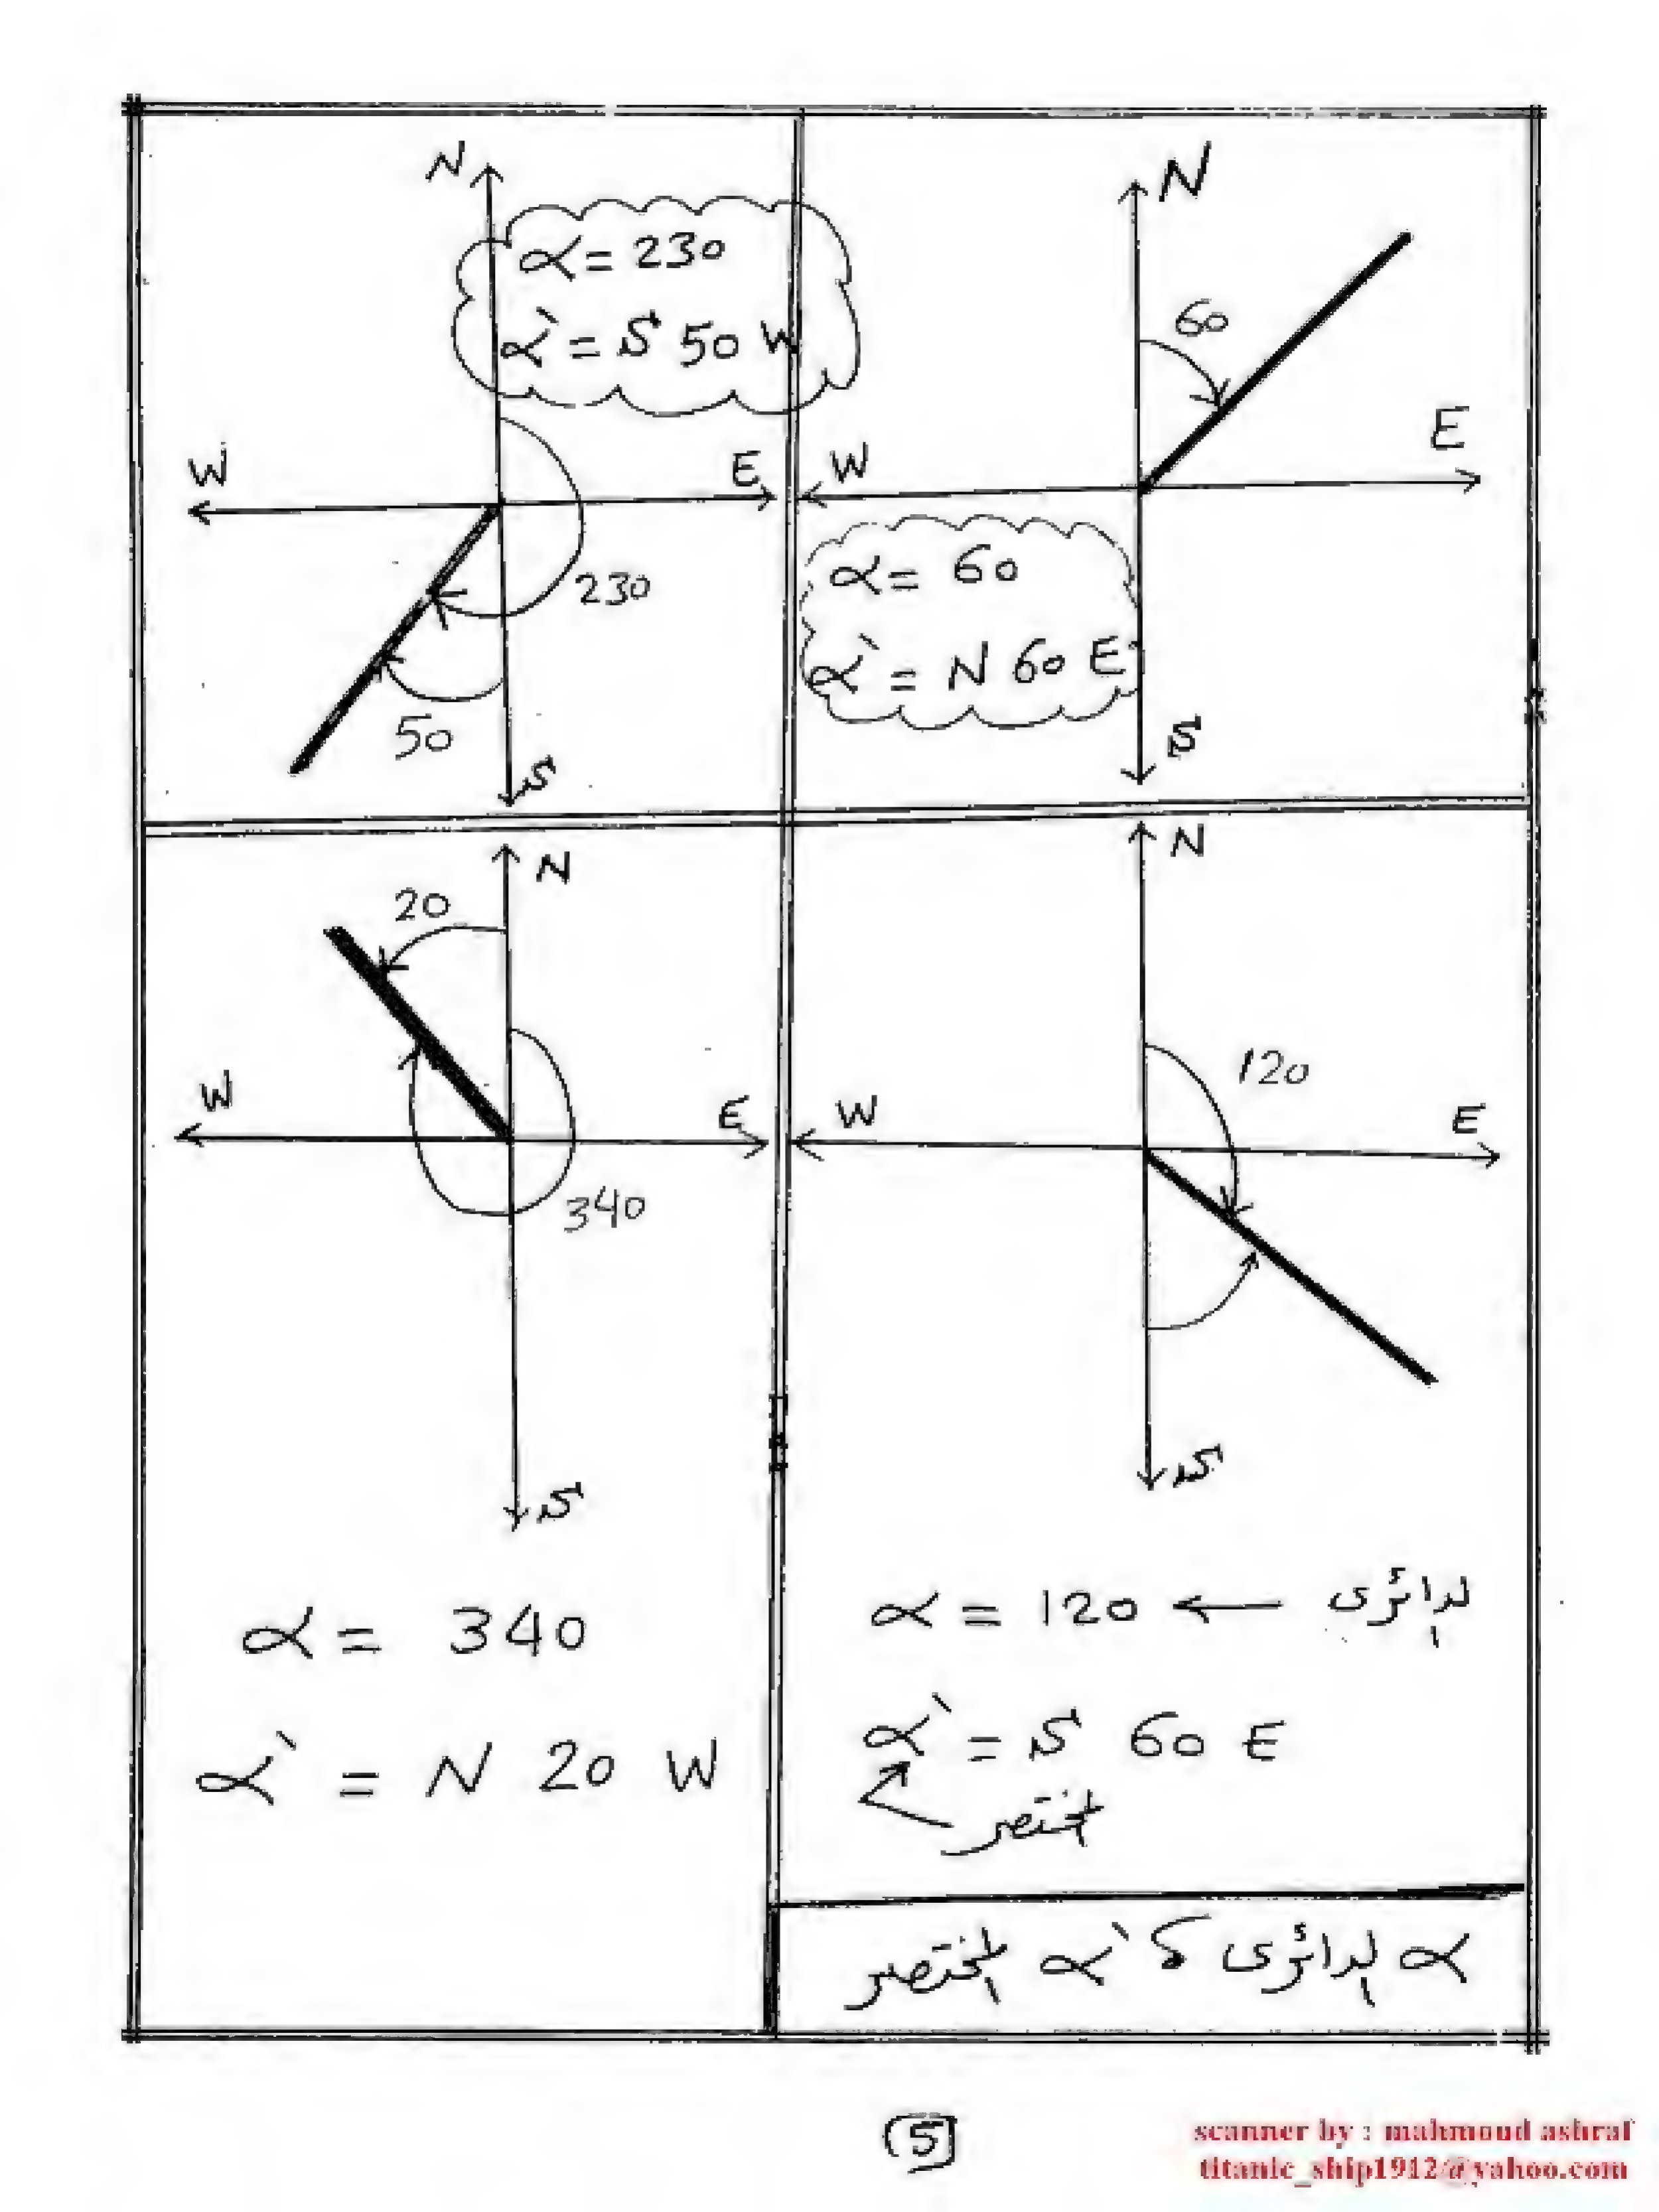 N
α = 230
α` = S 50 W
W
E
230
50
S
N
60
E
W
α = 60
α` = N 60 E
S
N
20
W
E
340
S
α = 340
α` = N 20 W
N
120
W
E
S
α = 120 ← الدائرى
α` = S 60 E
المختصر
α الدائرى ، α` المختصر
5
scanner by : mahmoud ashraf
titanic_ship1912@yahoo.com